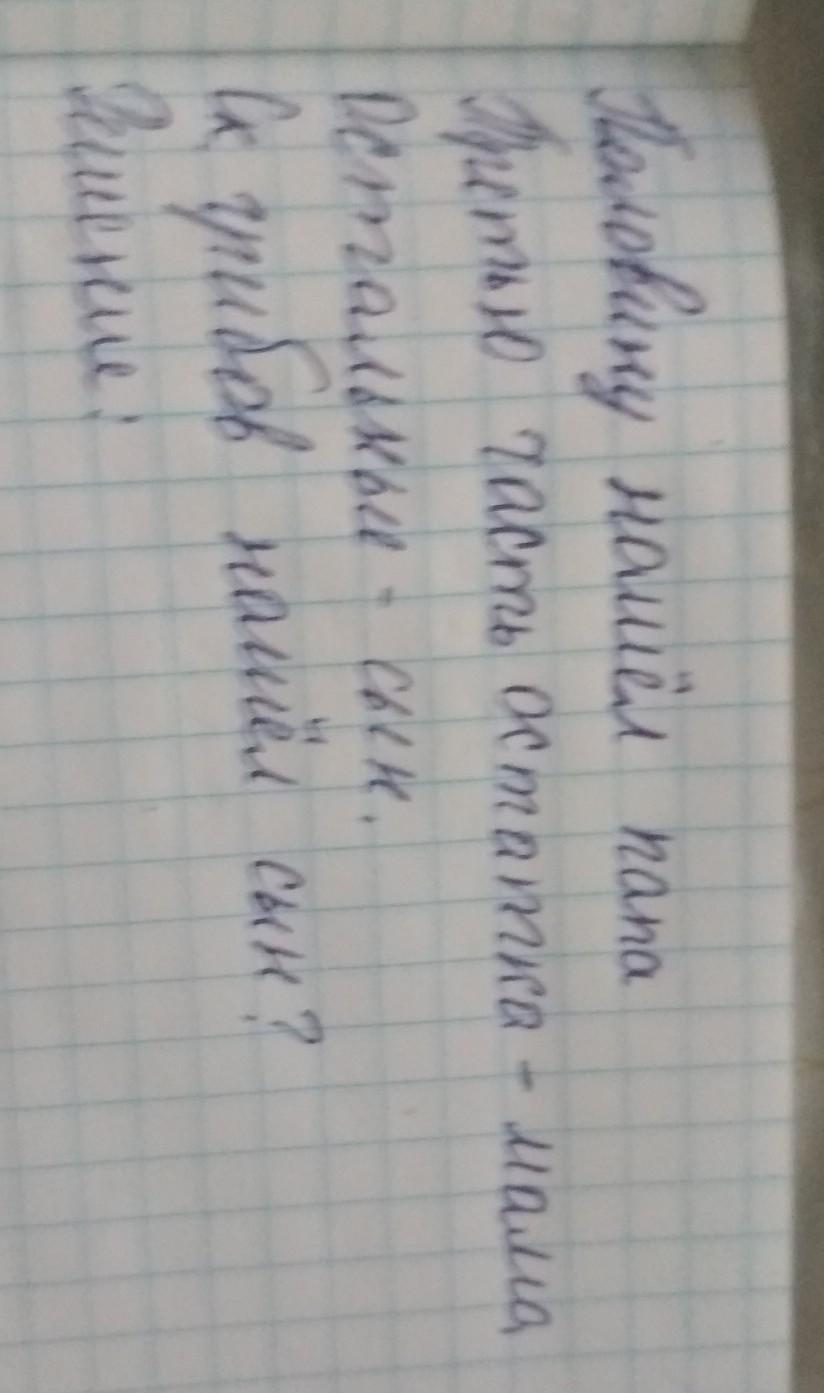 Половину нашёл папа
Третью часть остатка - мама
Остальные - сын.
Ск грибов нашёл сын?
Решение: